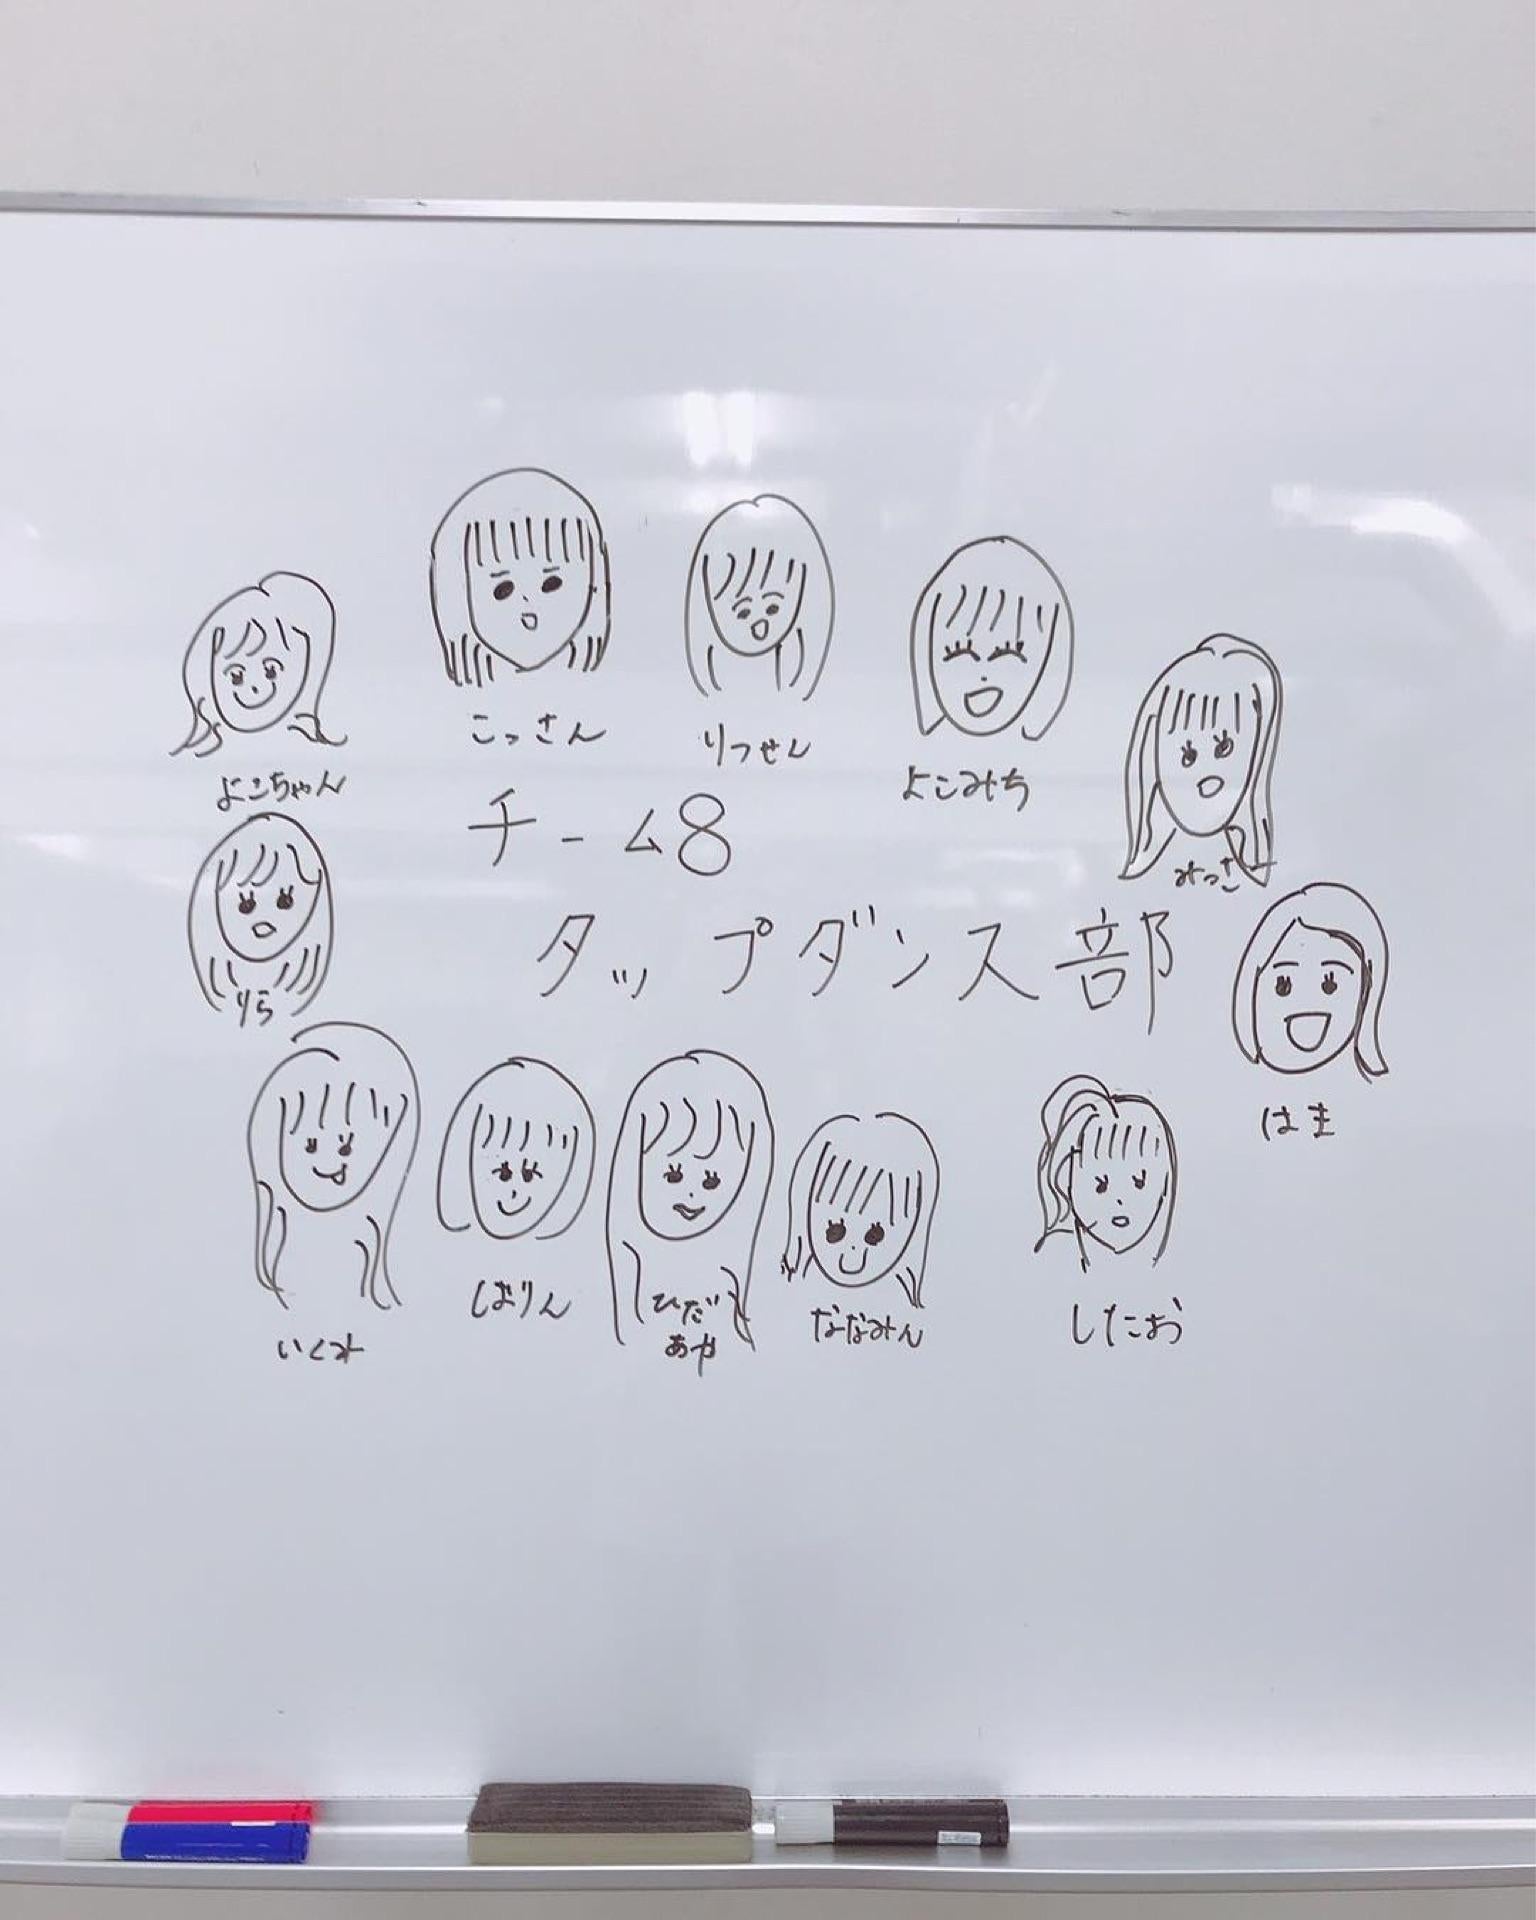 こっさん
りっせん
よこみち
よこちゃん
みっき
チーム8
タップダンス部
りら
はま
いくみ
しおりん
ひだ
あや
ななみん
したお